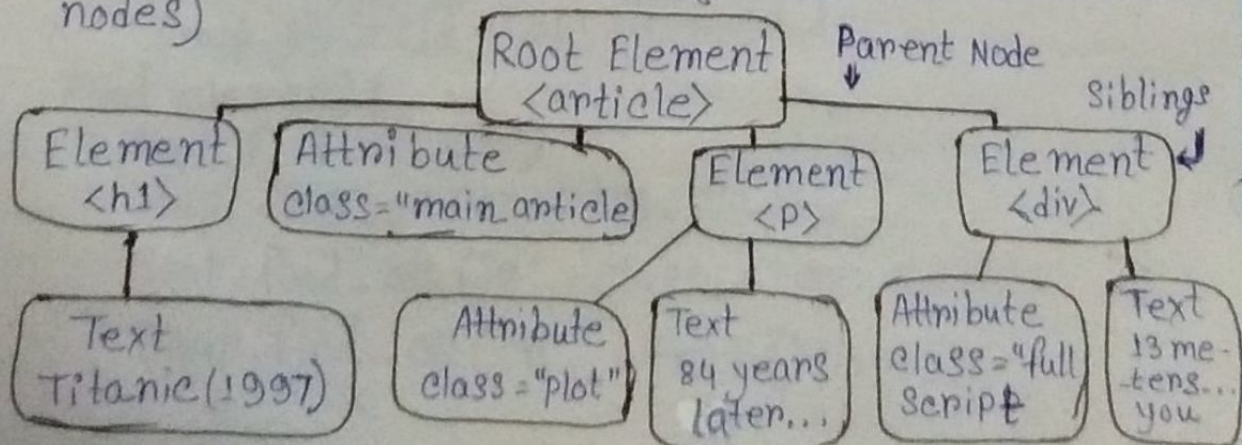 nodes)
Root Element
<article>
Parent Node
Siblings
Element
<h1>
Attribute
class="main article
Element
<p>
Element
<div>
Text
Titanic (1997)
Attribute
class="plot"
Text
84 years
later...
Attribute
class="full
script
Text
13 me-
ters...
you